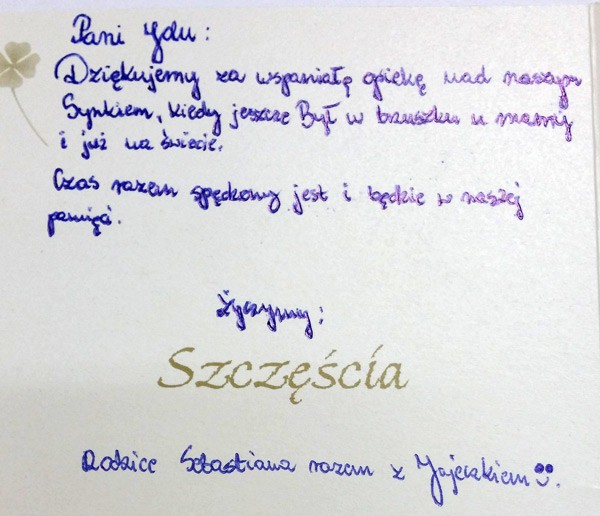 Pani Ydu:
Dziękujemy za wspaniałę opiekę nad naszym
Synkiem, kiedy jeszcze Był w brzuszku u mamy
i już na świecie.
Czas razem spędzony jest i będzie w naszej
pamięci.
Życzymy:
Szczęścia
Rodzice Sebastiana razem z